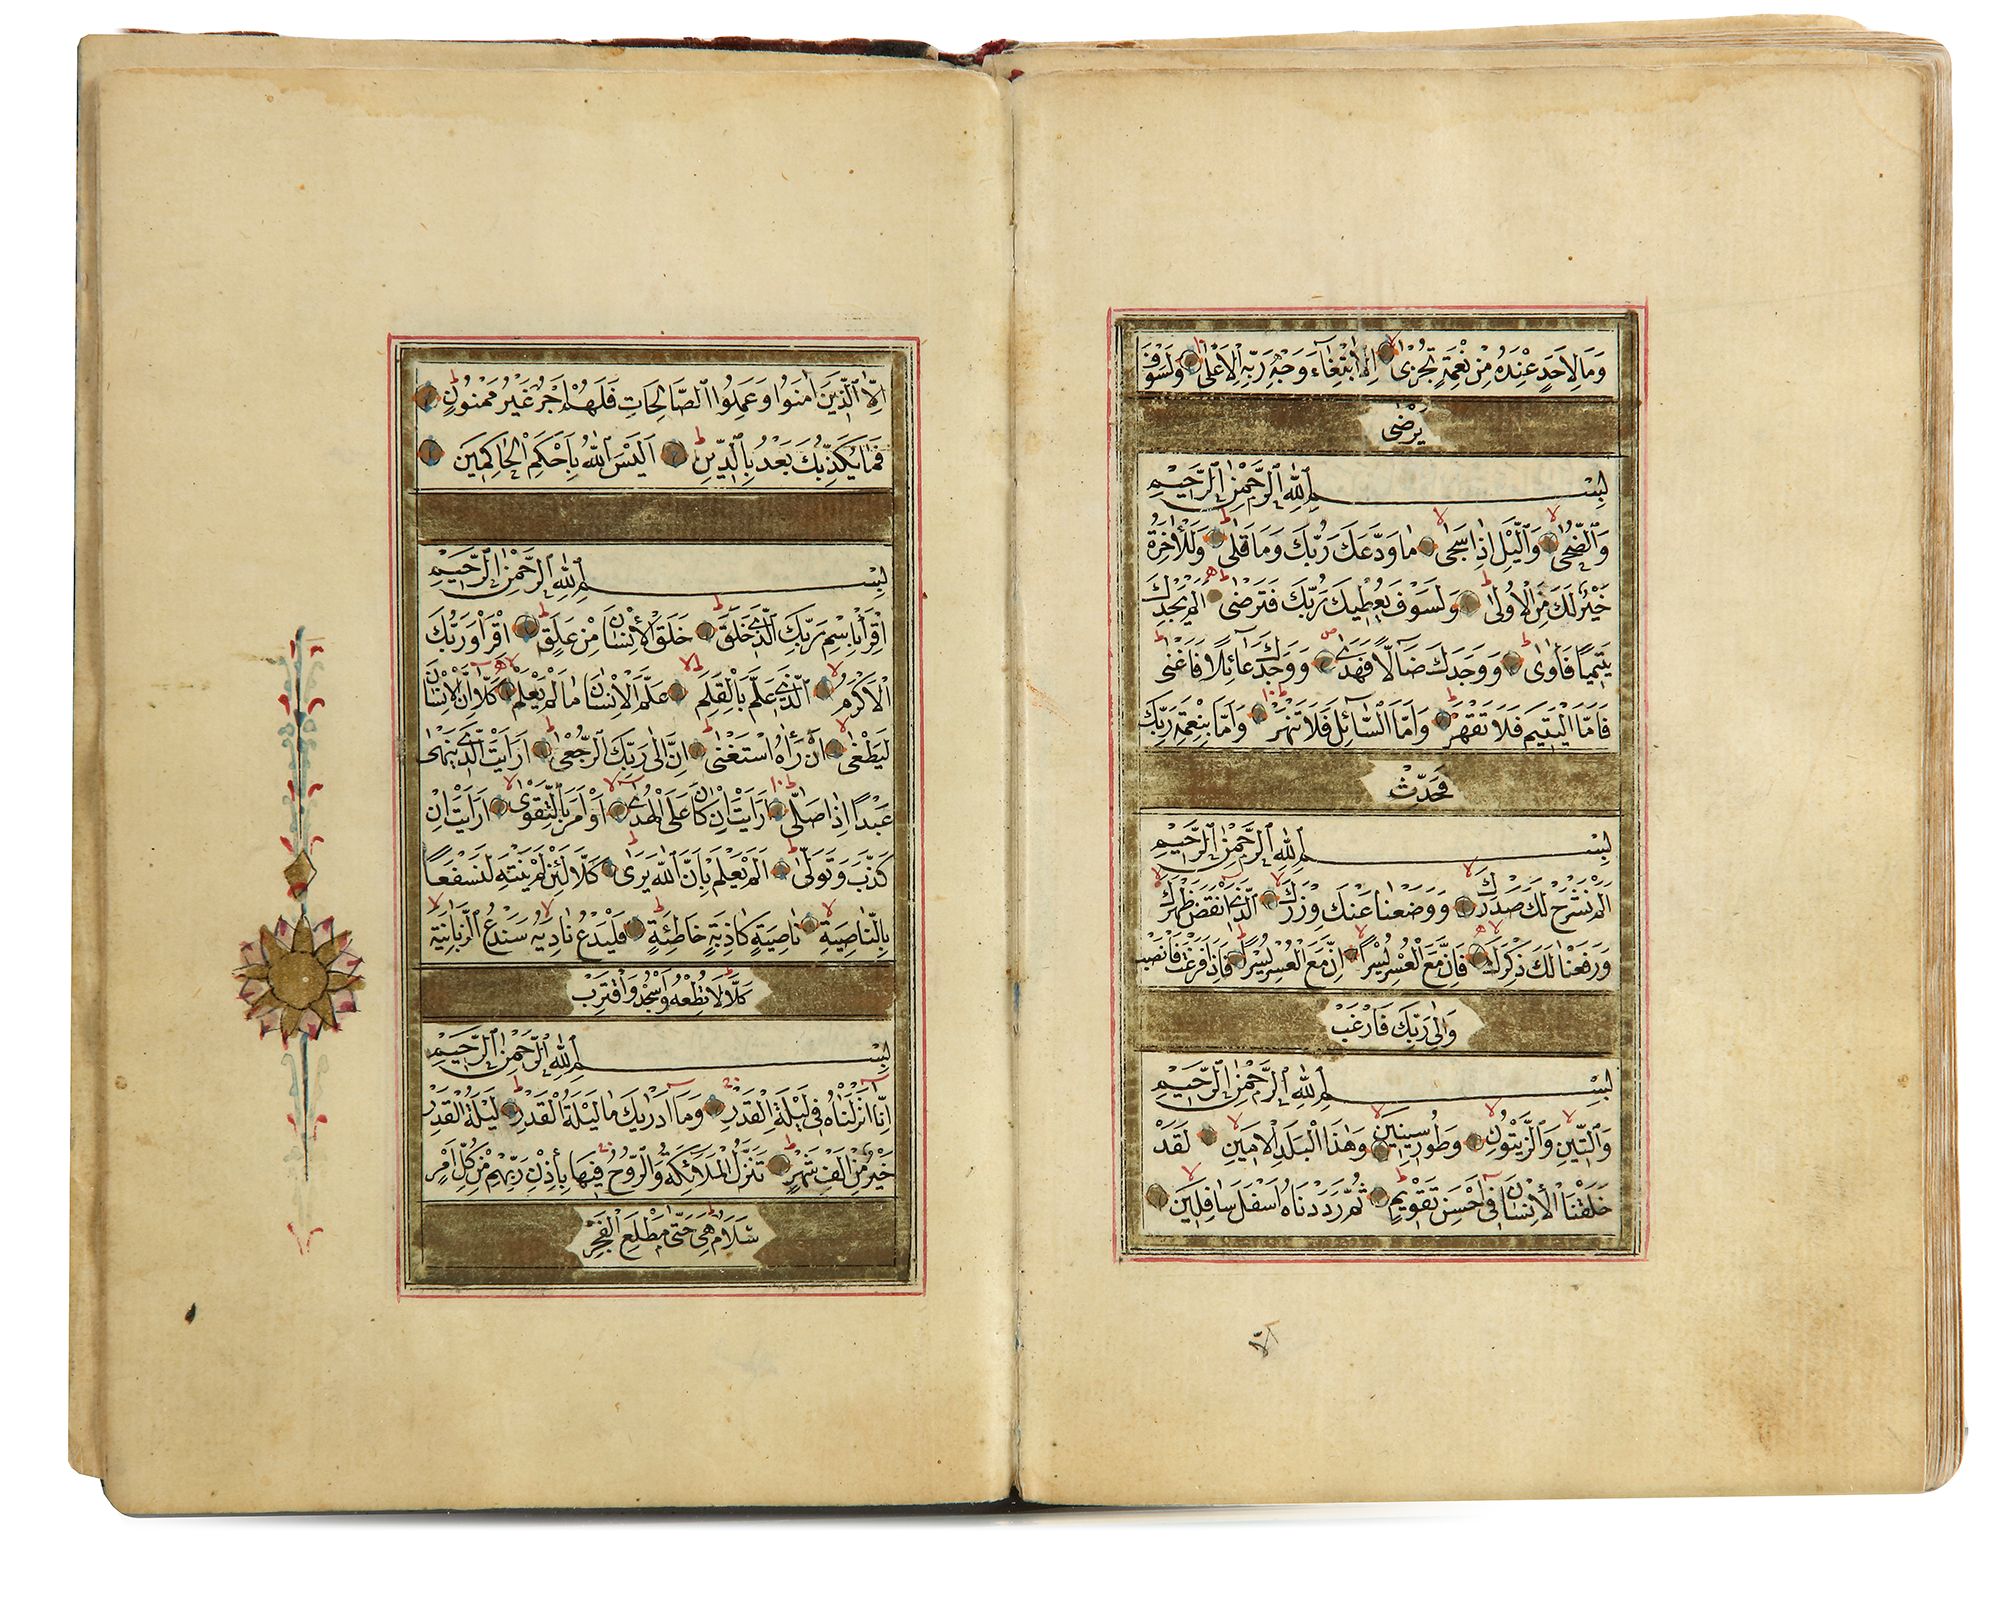 وَمَا لِاَحَدٍ عِنْدَهُ مِنْ نِعْمَةٍ تُجْزٰىۙ اِلَّا ابْتِغَٓاءَ وَجْهِ رَبِّهِ الْاَعْلٰى وَلَسَوْفَ
يَرْضٰى
بِسْمِ اللّٰهِ الرَّحْمٰنِ الرَّحِيمِ
وَالضُّحٰىۙ وَالَّيْلِ اِذَا سَجٰىۙ مَا وَدَّعَكَ رَبُّكَ وَمَا قَلٰىۜ وَلَلْاٰخِرَةُ
خَيْرٌ لَكَ مِنَ الْاُولٰىۜ وَلَسَوْفَ يُعْطِيكَ رَبُّكَ فَتَرْضٰىۜ اَلَمْ يَجِدْكَ
يَتِيمًا فَاٰوٰىۖ وَوَجَدَكَ ضَٓالًّا فَهَدٰىۖ وَوَجَدَكَ عَٓائِلًا فَاَغْنٰىۜ
فَاَمَّا الْيَتِيمَ فَلَا تَقْهَرْۜ وَاَمَّا السَّٓائِلَ فَلَا تَنْهَرْۜ وَاَمَّا بِنِعْمَةِ رَبِّكَ
فَحَدِّثْ
بِسْمِ اللّٰهِ الرَّحْمٰنِ الرَّحِيمِ
اَلَمْ نَشْرَحْ لَكَ صَدْرَكَۙ وَوَضَعْنَا عَنْكَ وِزْرَكَۙ اَلَّذِٓي اَنْقَضَ ظَهْرَكَۙ
وَرَفَعْنَا لَكَ ذِكْرَكَۜ فَاِنَّ مَعَ الْعُسْرِ يُسْرًاۙ اِنَّ مَعَ الْعُسْرِ يُسْرًاۜ فَاِذَا فَرَغْتَ فَانْصَبْ
وَاِلٰى رَبِّكَ فَارْغَبْ
بِسْمِ اللّٰهِ الرَّحْمٰنِ الرَّحِيمِ
وَالتِّينِ وَالزَّيْتُونِۙ وَطُورِ سِينِينَۙ وَهٰذَا الْبَلَدِ الْاَمِينِۙ لَقَدْ
خَلَقْنَا الْاِنْسَانَ فِٓي اَحْسَنِ تَقْوِيمٍۘ ثُمَّ رَدَدْنَاهُ اَسْفَلَ سَافِلِينَۙ
اِلَّا
اِلَّا الَّذِينَ اٰمَنُوا وَعَمِلُوا الصَّالِحَاتِ فَلَهُمْ اَجْرٌ غَيْرُ مَمْنُونٍۜ
فَمَا يُكَذِّبُكَ بَعْدُ بِالدِّينِۜ اَلَيْسَ اللّٰهُ بِاَحْكَمِ الْحَاكِمِينَ
بِسْمِ اللّٰهِ الرَّحْمٰنِ الرَّحِيمِ
اِقْرَأْ بِاسْمِ رَبِّكَ الَّذِي خَلَقَۚ خَلَقَ الْاِنْسَانَ مِنْ عَلَقٍۚ اِقْرَأْ وَرَبُّكَ
الْاَكْرَمُۙ اَلَّذِي عَلَّمَ بِالْقَلَمِۙ عَلَّمَ الْاِنْسَانَ مَا لَمْ يَعْلَمْۜ كَلَّٓا اِنَّ الْاِنْسَانَ
لَيَطْغٰىۙ اَنْ رَاٰهُ اسْتَغْنٰىۜ اِنَّ اِلٰى رَبِّكَ الرُّجْعٰىۜ اَرَاَيْتَ الَّذِي يَنْهٰى
عَبْدًا اِذَا صَلّٰىۜ اَرَاَيْتَ اِنْ كَانَ عَلَى الْهُدٰىۙ اَوْ اَمَرَ بِالتَّقْوٰىۜ اَرَاَيْتَ اِنْ
كَذَّبَ وَتَوَلّٰىۜ اَلَمْ يَعْلَمْ بِاَنَّ اللّٰهَ يَرٰىۜ كَلَّا لَئِنْ لَمْ يَنْتَهِ لَنَسْفَعًا
بِالنَّاصِيَةِۙ نَاصِيَةٍ كَاذِبَةٍ خَاطِئَةٍۚ فَلْيَدْعُ نَادِيَهُۙ سَنَدْعُ الزَّبَانِيَةَۙ
كَلَّا لَا تُطِعْهُ وَاسْجُدْ وَاقْتَرِبْ
بِسْمِ اللّٰهِ الرَّحْمٰنِ الرَّحِيمِ
اِنَّٓا اَنْزَلْنَاهُ فِي لَيْلَةِ الْقَدْرِۚ وَمَٓا اَدْرٰيكَ مَا لَيْلَةُ الْقَدْرِۜ لَيْلَةُ الْقَدْرِ
خَيْرٌ مِنْ اَلْفِ شَهْرٍۜ تَنَزَّلُ الْمَلٰٓئِكَةُ وَالرُّوحُ فِيهَا بِاِذْنِ رَبِّهِمْ مِنْ كُلِّ اَمْرٍ
سَلَامٌ هِيَ حَتّٰى مَطْلَعِ الْفَجْرِ